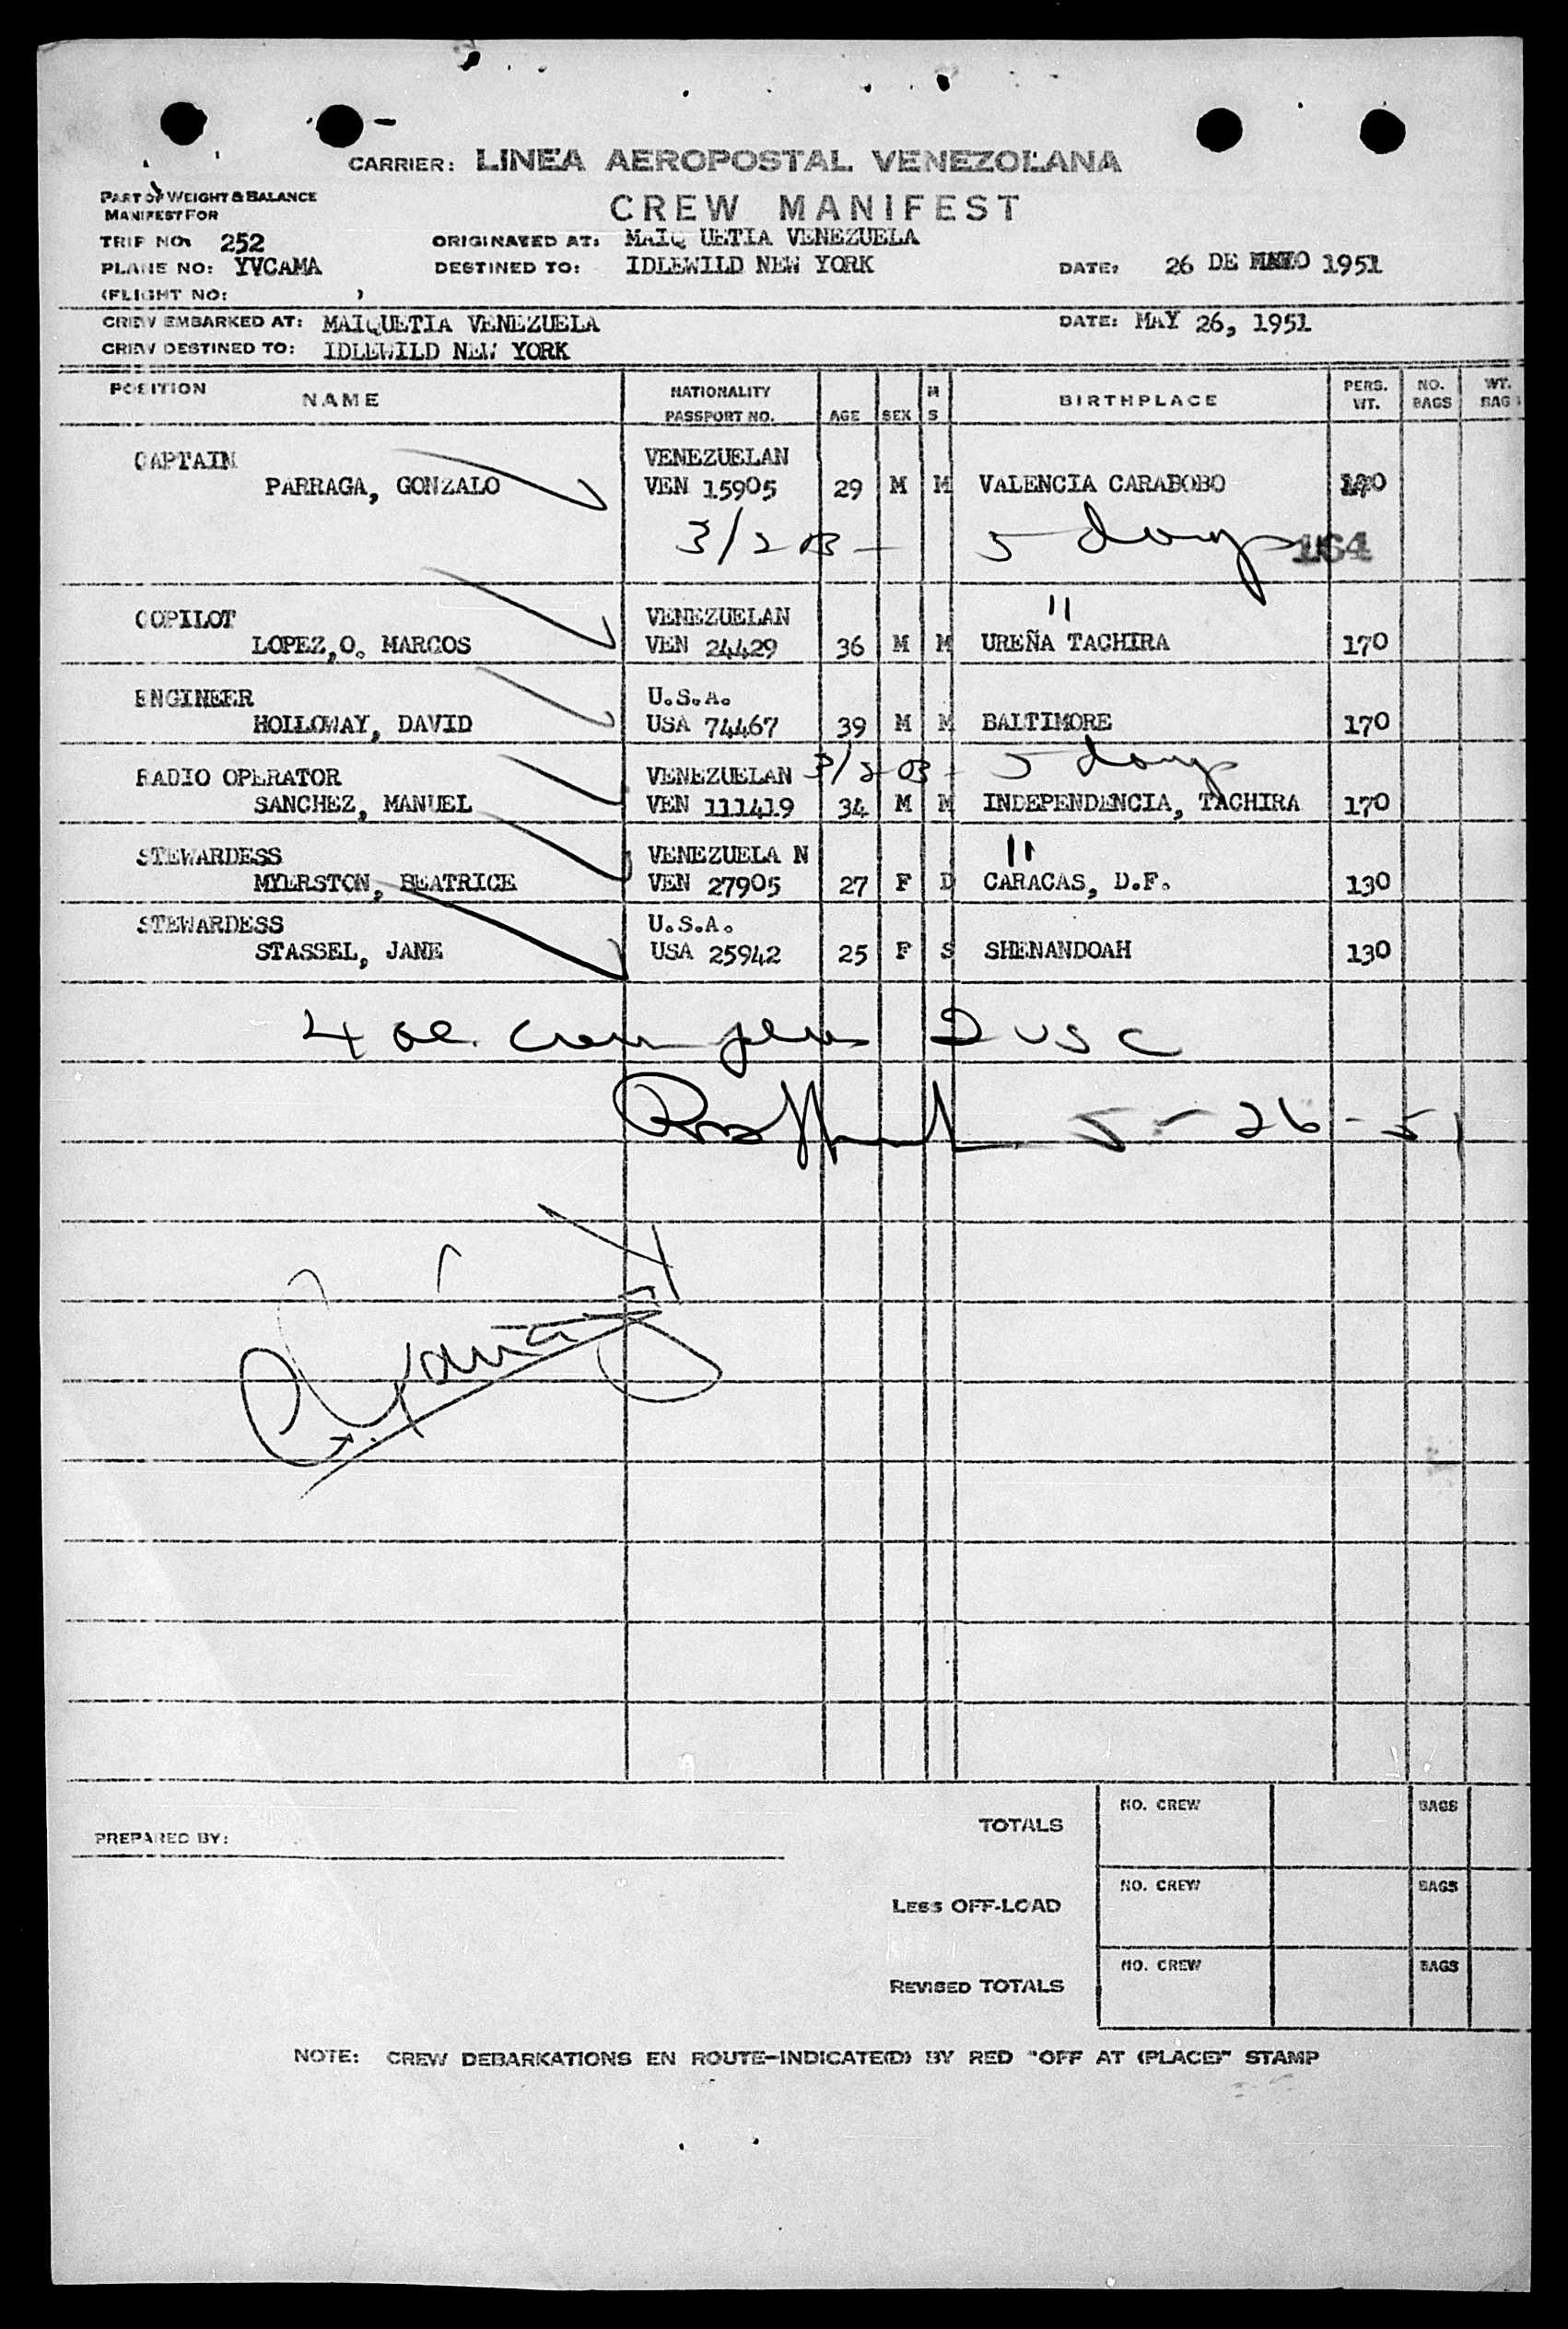 CARRIER: LINEA AEROPOSTAL VENEZOLANA
PART OF WEIGHT & BALANCE
MANIFEST FOR
CREW MANIFEST
TRIP NO: 252 ORIGINATED AT: MAIQ UETIA VENEZUELA
PLANE NO: YVCAMA DESTINED TO: IDLEWILD NEW YORK DATE: 26 DE 1951
(FLIGHT NO: )
CREW EMBARKED AT: MAIQUETIA VENEZUELA DATE: MAY 26, 1951
CREW DESTINED TO: IDLEWILD NEW YORK
POSITION NAME NATIONALITY PASSPORT NO. AGE SEX M S BIRTHPLACE PERS. WT. NO. BAGS WT. BAGS
CAPTAIN VENEZUELAN
PARRAGA, GONZALO VEN 15905 29 M M VALENCIA CARABOBO
3/2 03 – 5 days 164
COPILOT VENEZUELAN "
LOPEZ,O. MARCOS VEN 24429 36 M M UREÑA TACHIRA 170
ENGINEER U.S.A.
HOLLOWAY, DAVID USA 74467 39 M M BALTIMORE 170
RADIO OPERATOR VENEZUELAN 3/2-03 - 5 days
SANCHEZ, MANUEL VEN 111419 34 M M INDEPENDENCIA, TACHIRA 170
STEWARDESS VENEZUELA N "
MYERSTON, BEATRICE VEN 27905 27 F D CARACAS, D.F. 130
STEWARDESS U.S.A.
STASSEL, JANE USA 25942 25 F S SHENANDOAH 130
4 al. crew plus 2 USC
5-26-51
TOTALS NO. CREW BAGS
PREPARED BY:
LESS OFF-LOAD NO. CREW BAGS
REVISED TOTALS NO. CREW BAGS
NOTE: CREW DEBARKATIONS EN ROUTE—INDICATE(D) BY RED "OFF AT (PLACE)" STAMP